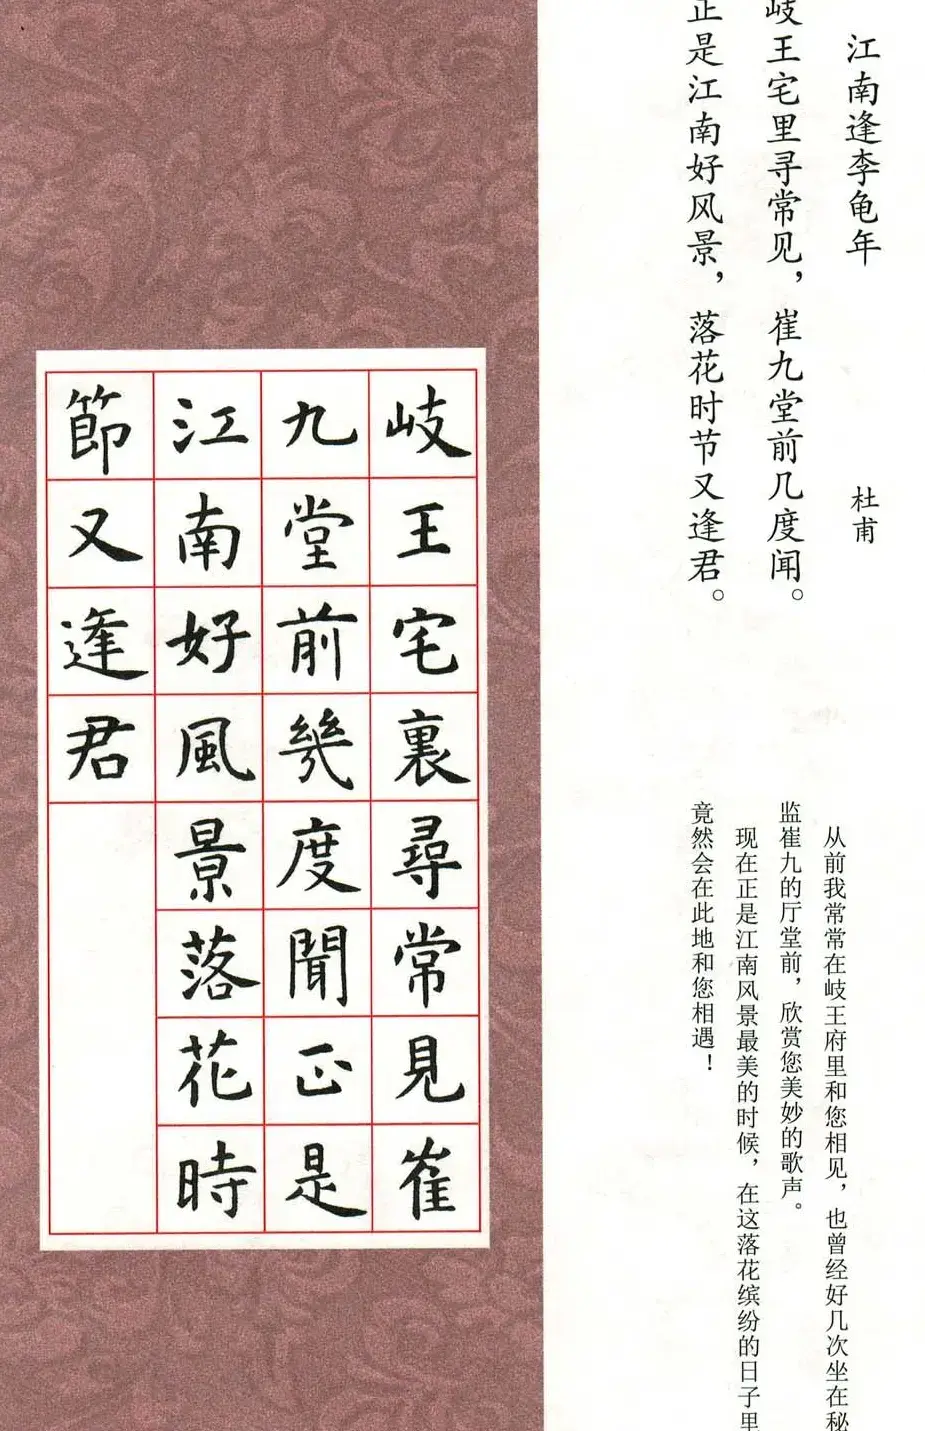 江南逢李龟年
杜甫
岐王宅里寻常见，崔九堂前几度闻。
正是江南好风景，落花时节又逢君。
从前我常常在岐王府里和您相见，也曾经好几次坐在秘
监崔九的厅堂前，欣赏您美妙的歌声。
现在正是江南风景最美的时候，在这落花缤纷的日子里
竟然会在此地和您相遇！
岐王宅裏尋常見崔
九堂前幾度聞正是
江南好風景落花時
節又逢君